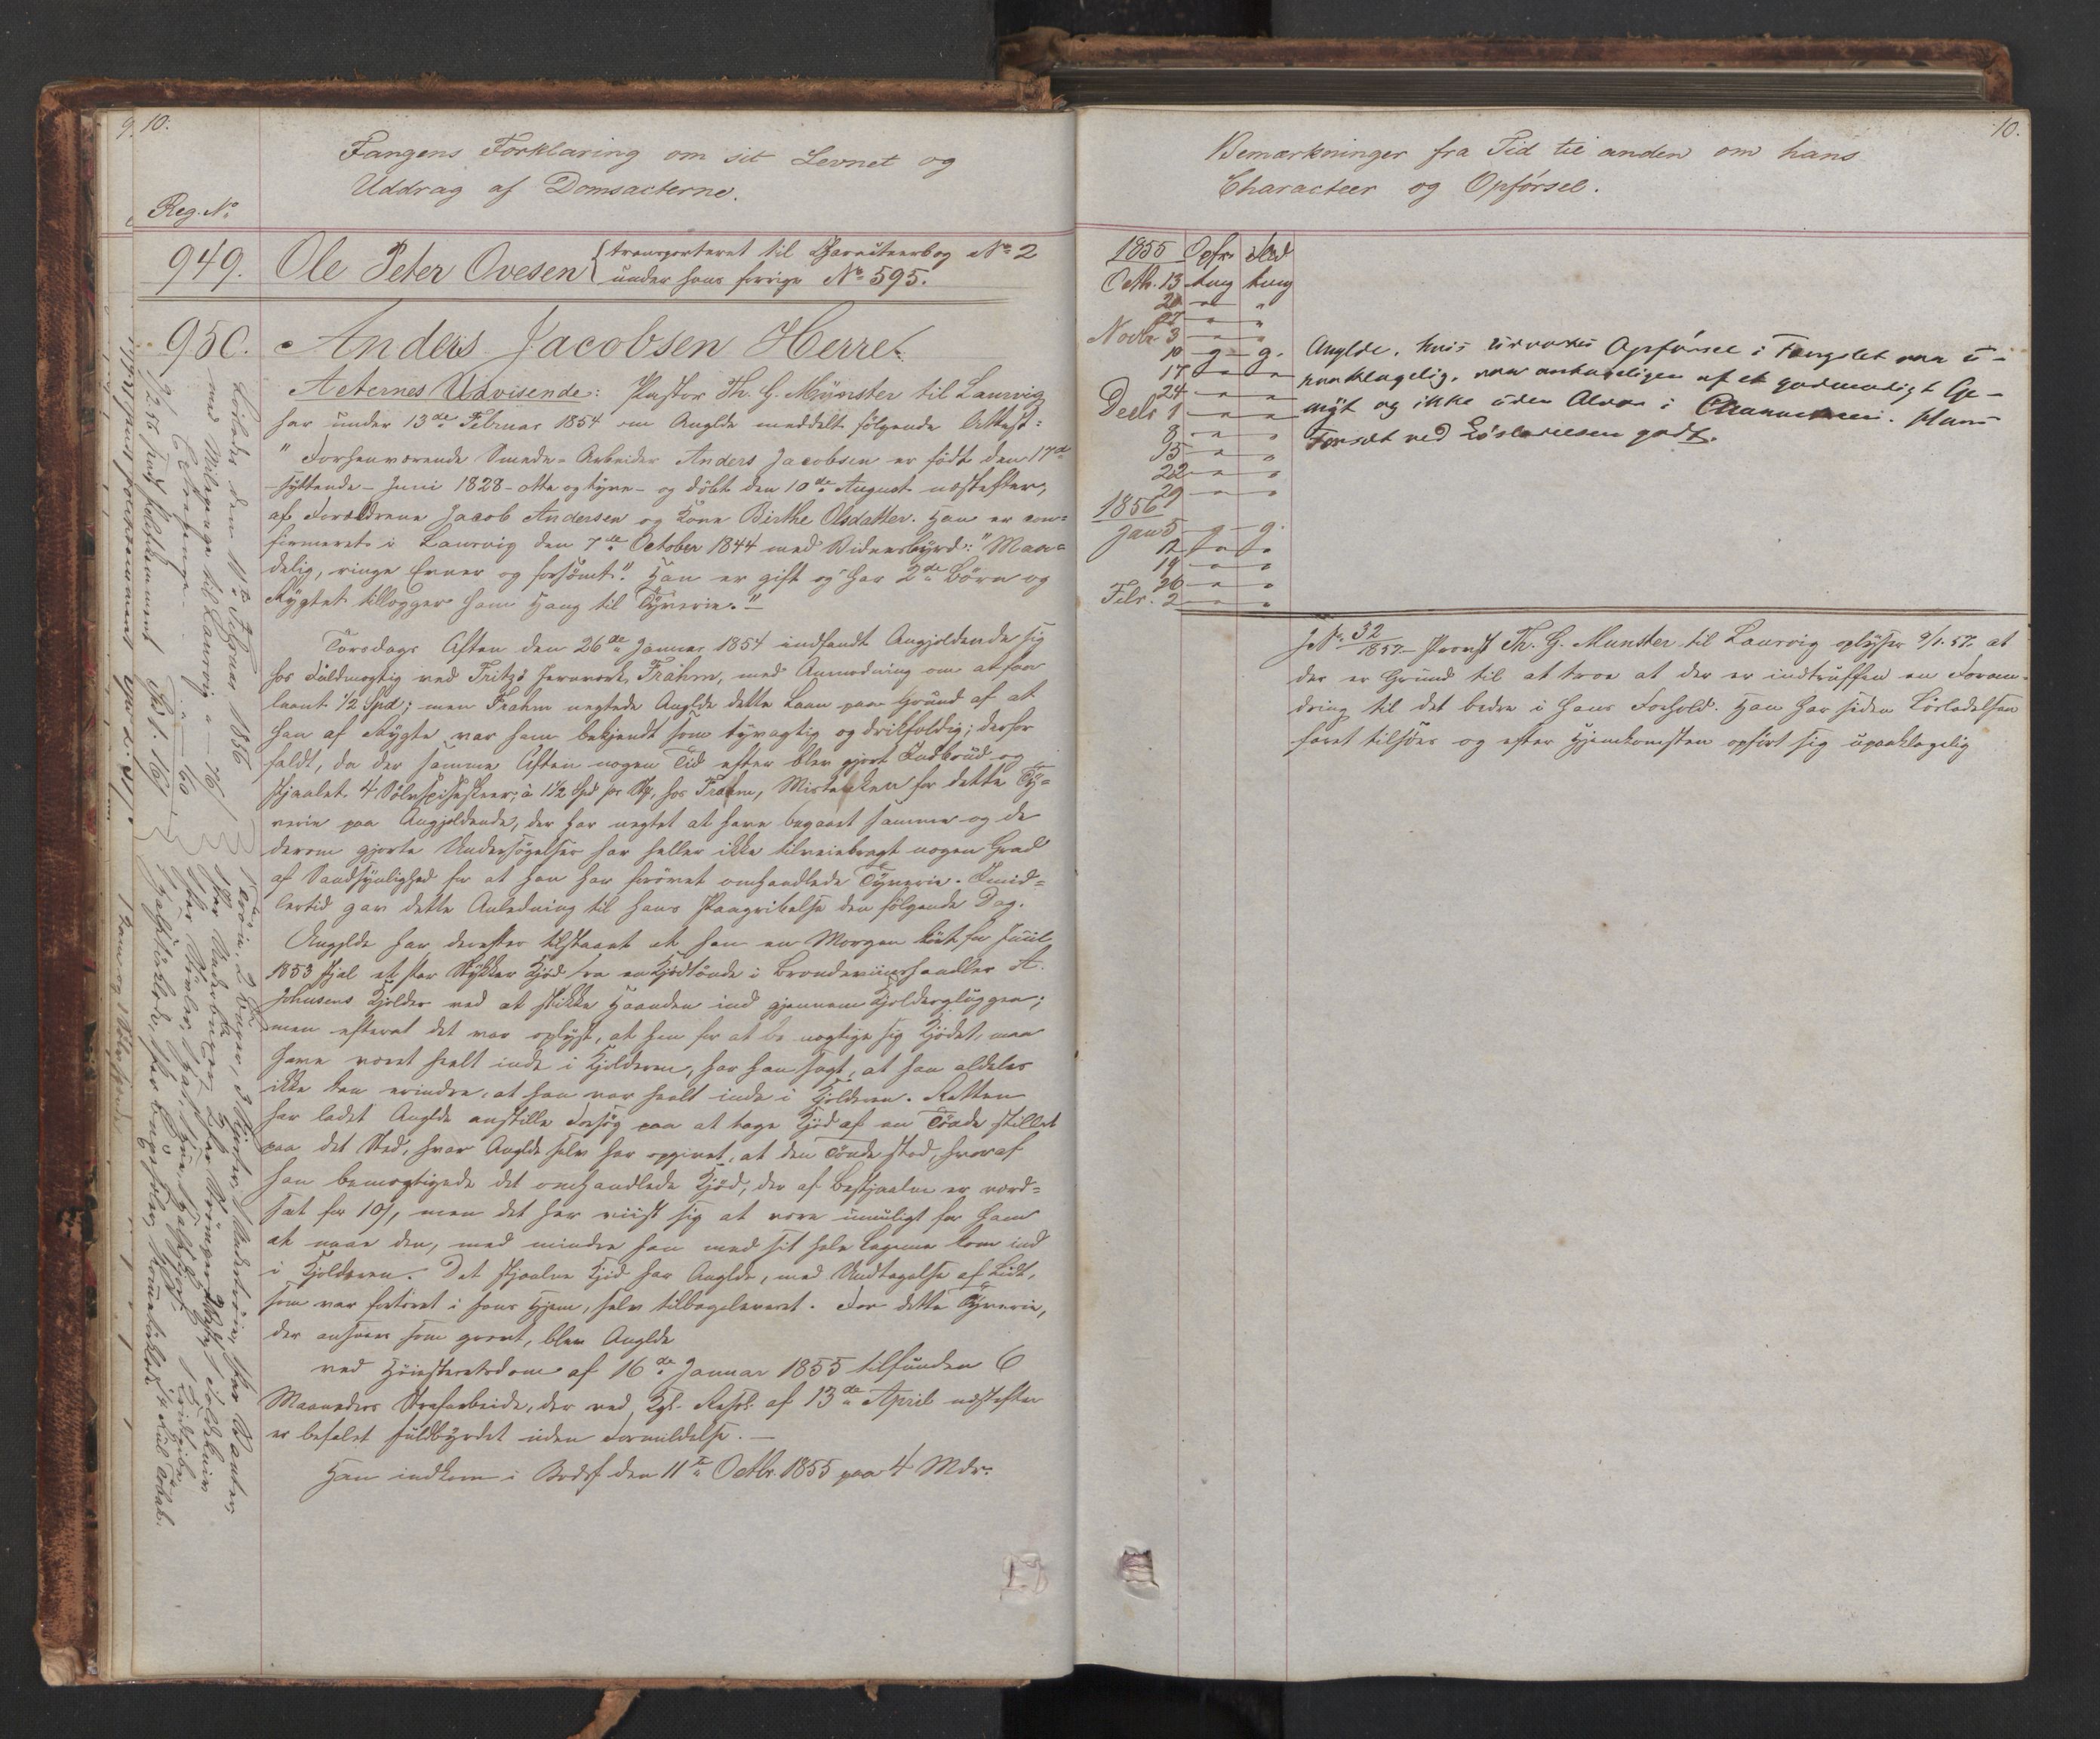 10.
Fangens Forklaring om sit Levnet og
Uddrag af Domsacterne.
Reg. No
949. Ole Peter Ovesen (transporteret til Characteerbog No 2
under hans forrige No 595.
950. Anders Jacobsen Herre.
Acternes Udvisende: Pastor Th. G. Münster til Laurvig
har under 13de Februar 1854 om Anglde meddelt følgende Attest:
"Forhenværende Smede-Arbeider Anders Jacobsen er født den 17de
- syttende - Juni 1828 - otte og tyve - og døbt den 10de August næstefter,
af Forældrene Jacob Andersen og Kone Birthe Olsdatter. Han er con-
firmeret i Laurvig den 7de October 1844 med Vidnesbyrd: "Maa-
delig, ringe Evner og forsømt." Han er gift og har 2de Børn og
Rygtet tillægger ham Hang til Tyverie."
Torsdags Aften den 26de Januar 1854 indfandt Angjeldende sig
hos Fuldmægtig ved Fritzø Jernværk, Frahm, med Anmodning om at faae
laant 1/2 Spd; men Frahm negtede Anglde dette Laan paa Grund af at
han af Rygte var ham bekjendt som tyvagtig og drikfældig; derfor
faldt, da der samme Aften nogen Tid efter blev gjort Indbrud og
stjaalet 4 Sølvspiseskeer, à 1 1/2 Spd pr Stk, hos Frahm, Mistanken for dette Ty-
verie paa Angjeldende, der har negtet at have begaaet samme og de
derom gjorte Undersøgelser har heller ikke tilveiebragt nogen Grad
af Sandsynlighed for at han har forøvet omhandlede Tyverie. Imid-
lertid gav dette Anledning til hans Paagribelse den følgende Dag.
Anglde har derefter tilstaaet at han en Morgen kort før Juul
1853 stjal et Par Stykker Kjød fra en Kjødtønde i Brændeviinshandler A.
Johnsens Kjelder ved at stikke Haanden ind gjennem Kjelderglyggen;
men efterat det var oplyst, at han for at be mægtige sig Kjødet, maa
have været heelt inde i Kjelderen, har han sagt, at han aldeles
ikke kan erindre, at han var heelt inde i Kjelderen. Retten
har ladet Anglde anstille Forsøg paa at tage Kjød af en Tønde stillet
paa det Sted, hvor Anglde selv har opgivet, at den Tønde stod, hvoraf
han bemægtigede det omhandlede Kjød, der af Bestjaalne er værd-
sat for 10 ß, men det har viist sig at være umuligt for ham
at naae den, med mindre han med sit hele Legeme kom ind
i Kjelderen. Det stjaalne Kjød har Anglde, med Undtagelse af Lidt,
som var fortæret i hans Hjem, selv tilbageleveret. For dette Tyverie,
der ansees som grovt, blev Anglde
ved Høiesteretsdom af 16de Januar 1855 tilfunden 6
Maaneders Strafarbeide, der ved Kgl. Resol. af 13de April næstefter
er befalet fuldbyrdet uden Formildelse. —
Han indkom i Bodsf. den 11te Octbr. 1855 paa 4 Mdr.
Løslades den 11te Februar 1856
med Milepenge til Laurvig
10.
Bemærkninger fra Tid til anden om hans
Characteer og Opførsel.
1855 Opfr. Flid
Octbr. 13 tug tug
20 " "
27 " "
Novbr 3 " "
10 g. g.
17 " "
24 " "
Decbr 1 " "
8 " "
15 " "
22 " "
29 " "
1856
Jan 5 g. g.
12 " "
19 " "
26 " "
Febr. 2 " "
Anglde, hvis udvortes Opførsel i Fængslet var u-
paaklagelig, var antageligen af et godmodigt Ge-
myt og ikke uden Alvor i Characteren. Hans
Forsæt ved Løsladelsen godt.
JNo 32/1857 - Provst Th. G. Münster til Laurvig oplyser 9/1. 57 at
der er Grund til at troe at der er indtruffen en Foran-
dring til det bedre i hans Forhold. Han har siden Løsladelsen
faret tilsøes og efter Hjemkomsten opført sig upaaklagelig